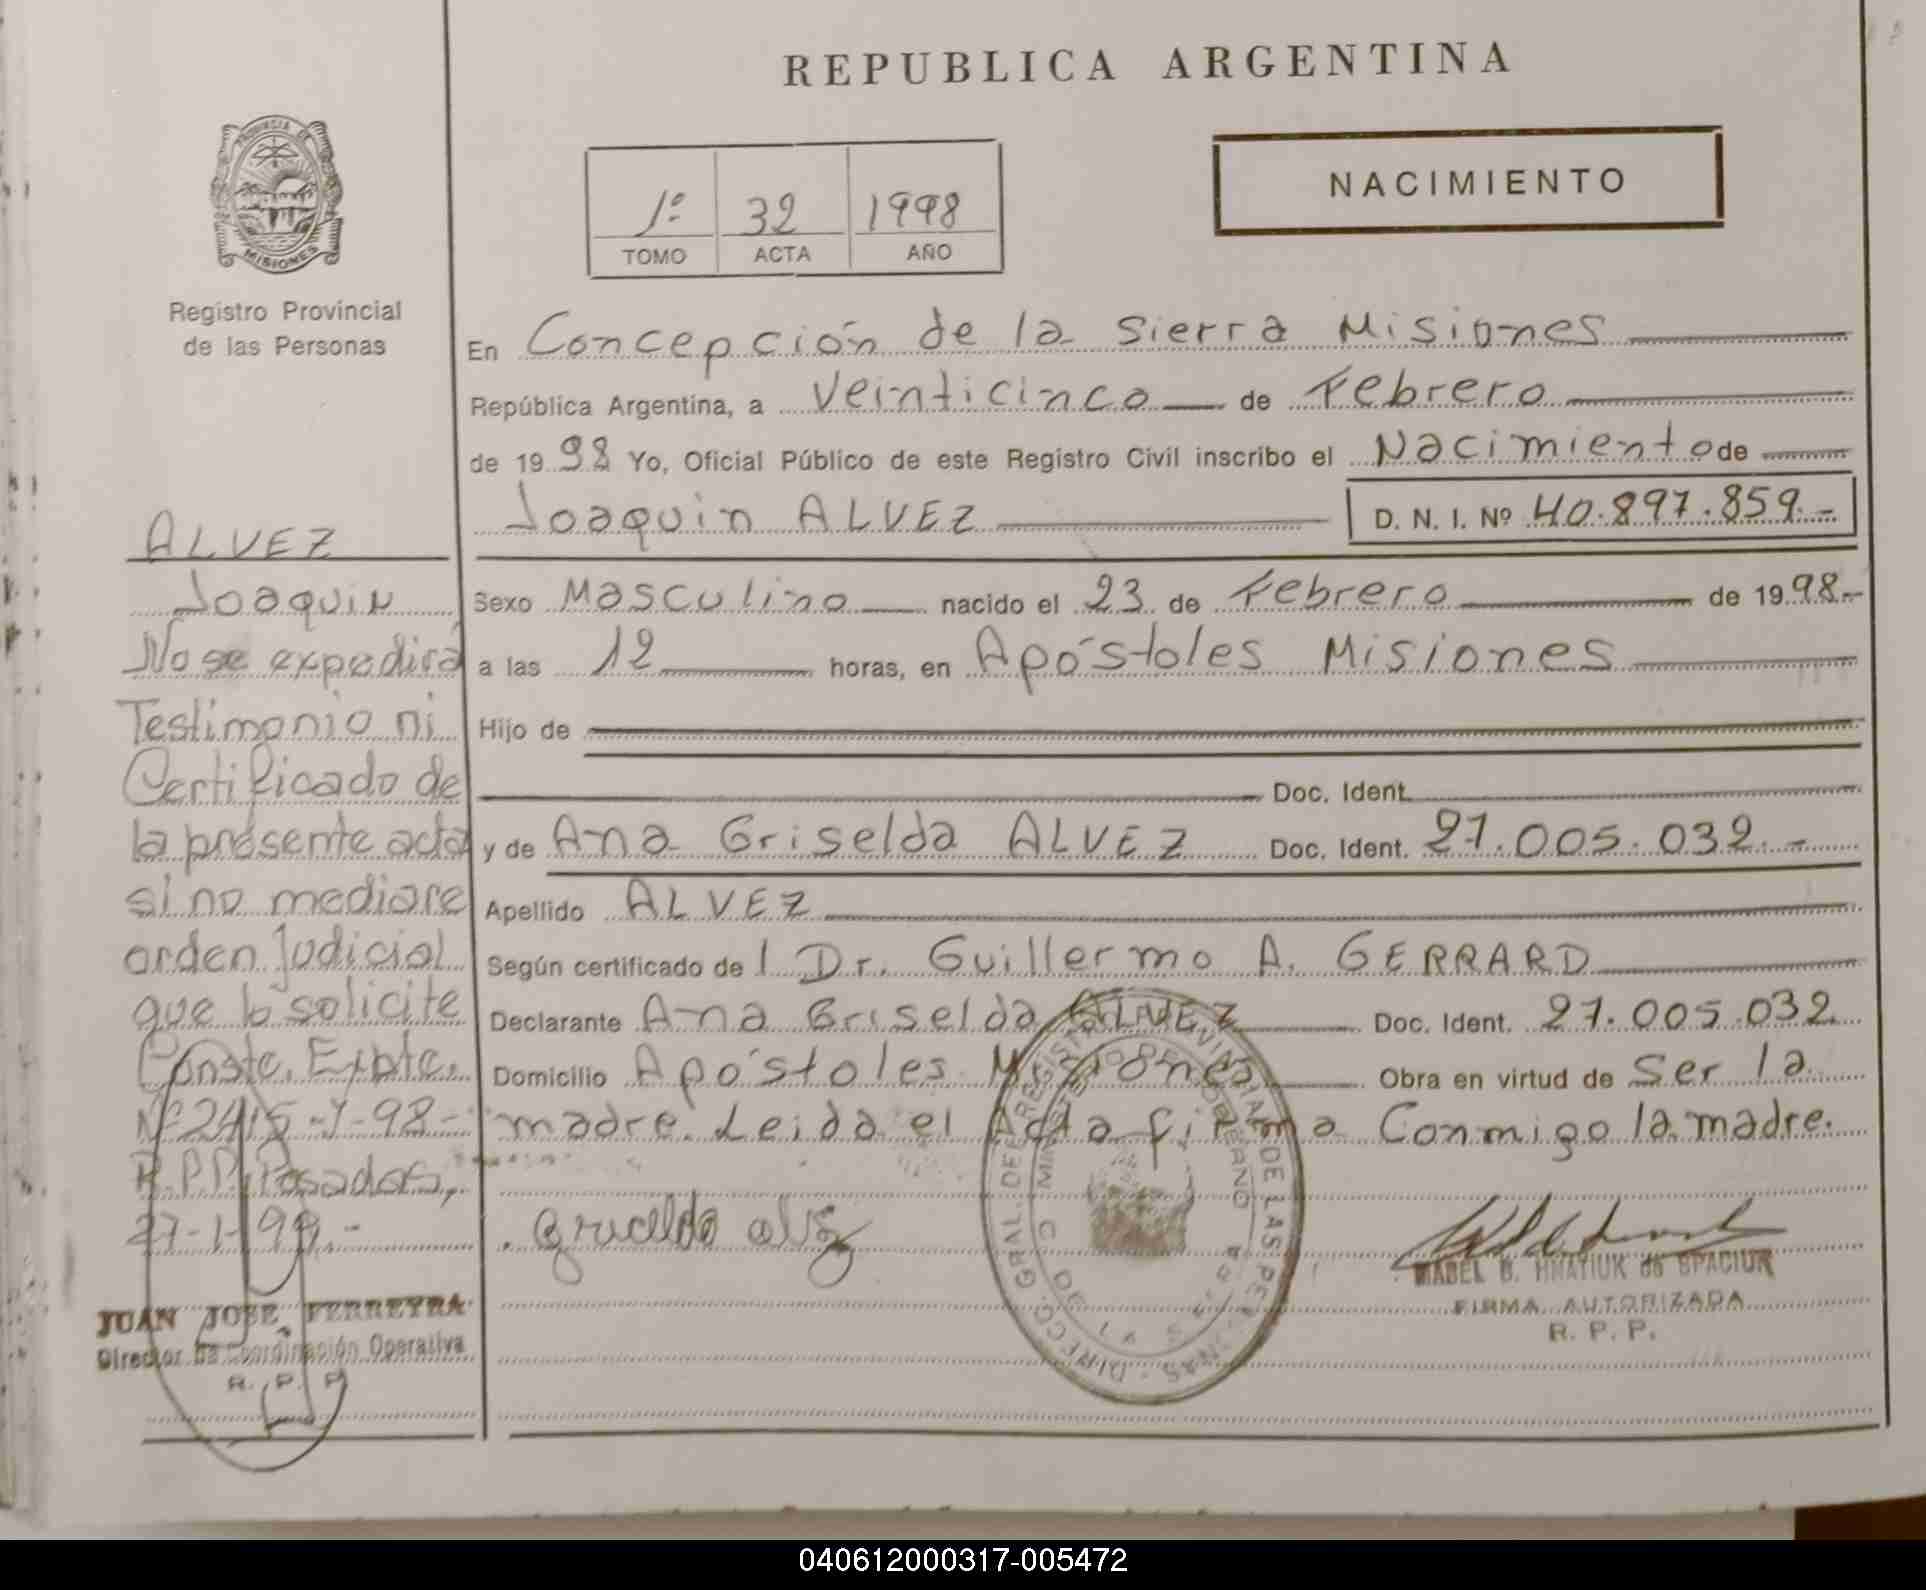 REPUBLICA ARGENTINA
PROVINCIA DE
MISIONES
Registro Provincial
de las Personas
1º
32
1998
TOMO
ACTA
AÑO
NACIMIENTO
En Concepción de la Sierra Misiones
República Argentina, a Veinticinco de Febrero
de 1998 Yo, Oficial Público de este Registro Civil inscribo el Nacimiento de
Joaquin ALVEZ
D. N. I. Nº 40.897.859.-
Sexo Masculino nacido el 23 de Febrero de 1998.-
a las 12 horas, en Apóstoles Misiones
Hijo de
Doc. Ident.
y de Ana Griselda ALVEZ Doc. Ident. 27.005.032.-
Apellido ALVEZ
Según certificado del Dr. Guillermo A. GERRARD
Declarante Ana Griselda ALVEZ Doc. Ident. 27.005.032.
Domicilio Apóstoles Misiones Obra en virtud de Ser la
madre. Leida el Acta firma Conmigo la madre.
ALVEZ
Joaquin
No se expedirá
Testimonio ni
Certificado de
la presente acta
si no mediare
orden Judicial
que lo solicite
Conste. Expte.
Nº 2415-I-98-
R.P.P. Posadas,
JUAN JOSE FERREYRA
Director de Coordinación Operativa
R. P. P.
Gricelda
MABEL B. HNATIUK de SPACIUK
FIRMA AUTORIZADA
R. P. P.
040612000317-005472